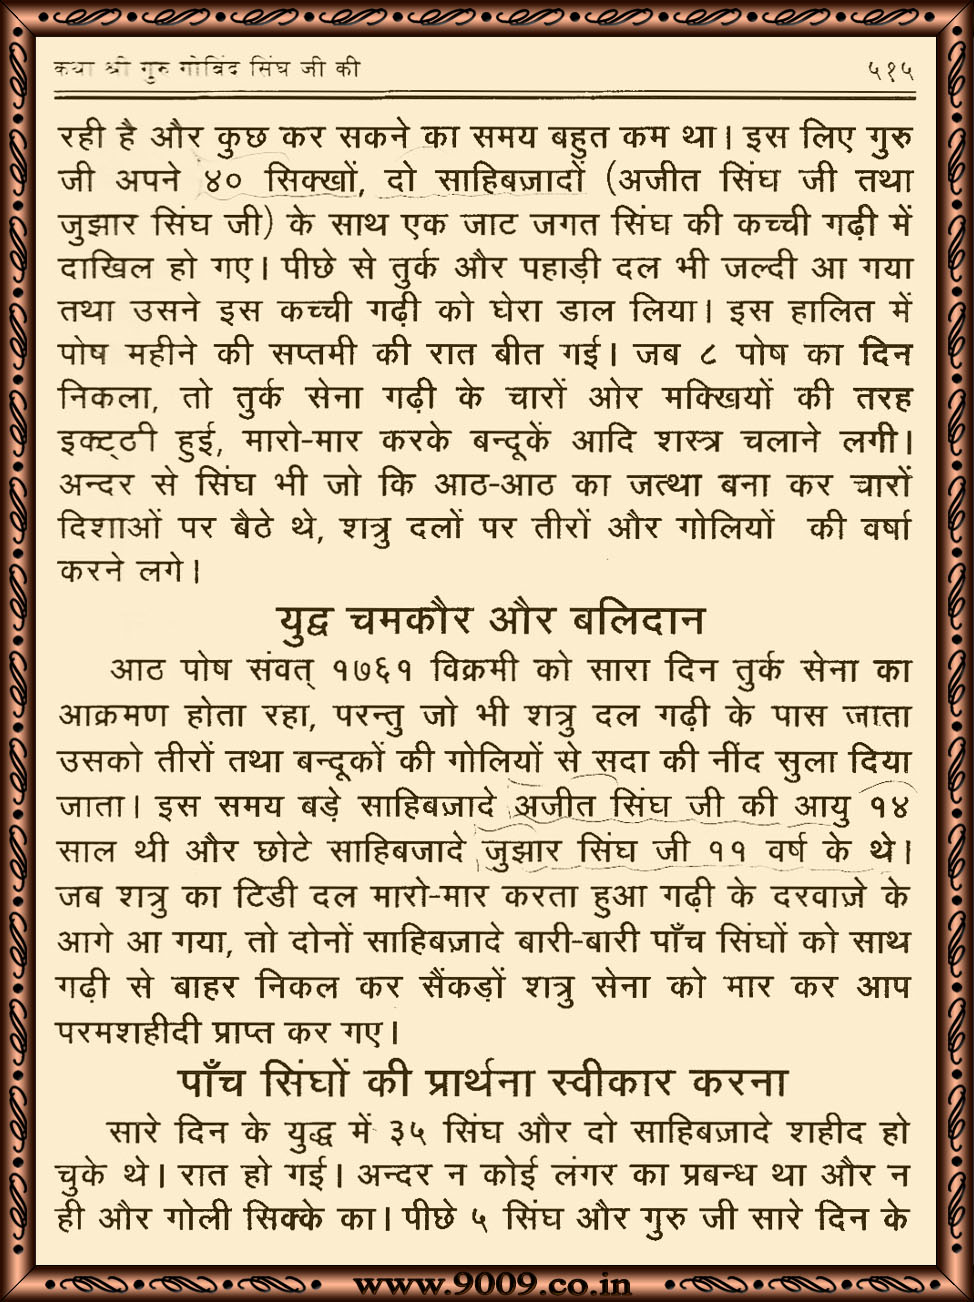 कथा श्री गुरु गोविंद सिंघ जी की ५१५
रही है और कुछ कर सकने का समय बहुत कम था। इस लिए गुरु
जी अपने ४० सिक्खों, दो साहिबज़ादों (अजीत सिंघ जी तथा
जुझार सिंघ जी) के साथ एक जाट जगत सिंघ की कच्ची गढ़ी में
दाखिल हो गए। पीछे से तुर्क और पहाड़ी दल भी जल्दी आ गया
तथा उसने इस कच्ची गढ़ी को घेरा डाल लिया। इस हालित में
पोष महीने की सप्तमी की रात बीत गई। जब ८ पोष का दिन
निकला, तो तुर्क सेना गढ़ी के चारों ओर मक्खियों की तरह
इक्ट्ठी हुई, मारो-मार करके बन्दूकें आदि शस्त्र चलाने लगी।
अन्दर से सिंघ भी जो कि आठ-आठ का जत्था बना कर चारों
दिशाओं पर बैठे थे, शत्रु दलों पर तीरों और गोलियों की वर्षा
करने लगे।
युद्व चमकौर और बलिदान
आठ पोष संवत् १७६१ विक्रमी को सारा दिन तुर्क सेना का
आक्रमण होता रहा, परन्तु जो भी शत्रु दल गढ़ी के पास जाता
उसको तीरों तथा बन्दूकों की गोलियों से सदा की नींद सुला दिया
जाता। इस समय बड़े साहिबज़ादे अजीत सिंघ जी की आयु १४
साल थी और छोटे साहिबजादे जुझार सिंघ जी ११ वर्ष के थे।
जब शत्रु का टिडी दल मारो-मार करता हुआ गढ़ी के दरवाज़े के
आगे आ गया, तो दोनों साहिबज़ादे बारी-बारी पाँच सिंघों को साथ
गढ़ी से बाहर निकल कर सैंकड़ों शत्रु सेना को मार कर आप
परमशहीदी प्राप्त कर गए।
पाँच सिंघों की प्रार्थना स्वीकार करना
सारे दिन के युद्ध में ३५ सिंघ और दो साहिबज़ादे शहीद हो
चुके थे। रात हो गई। अन्दर न कोई लंगर का प्रबन्ध था और न
ही और गोली सिक्के का। पीछे ५ सिंघ और गुरु जी सारे दिन के
www.9009.co.in